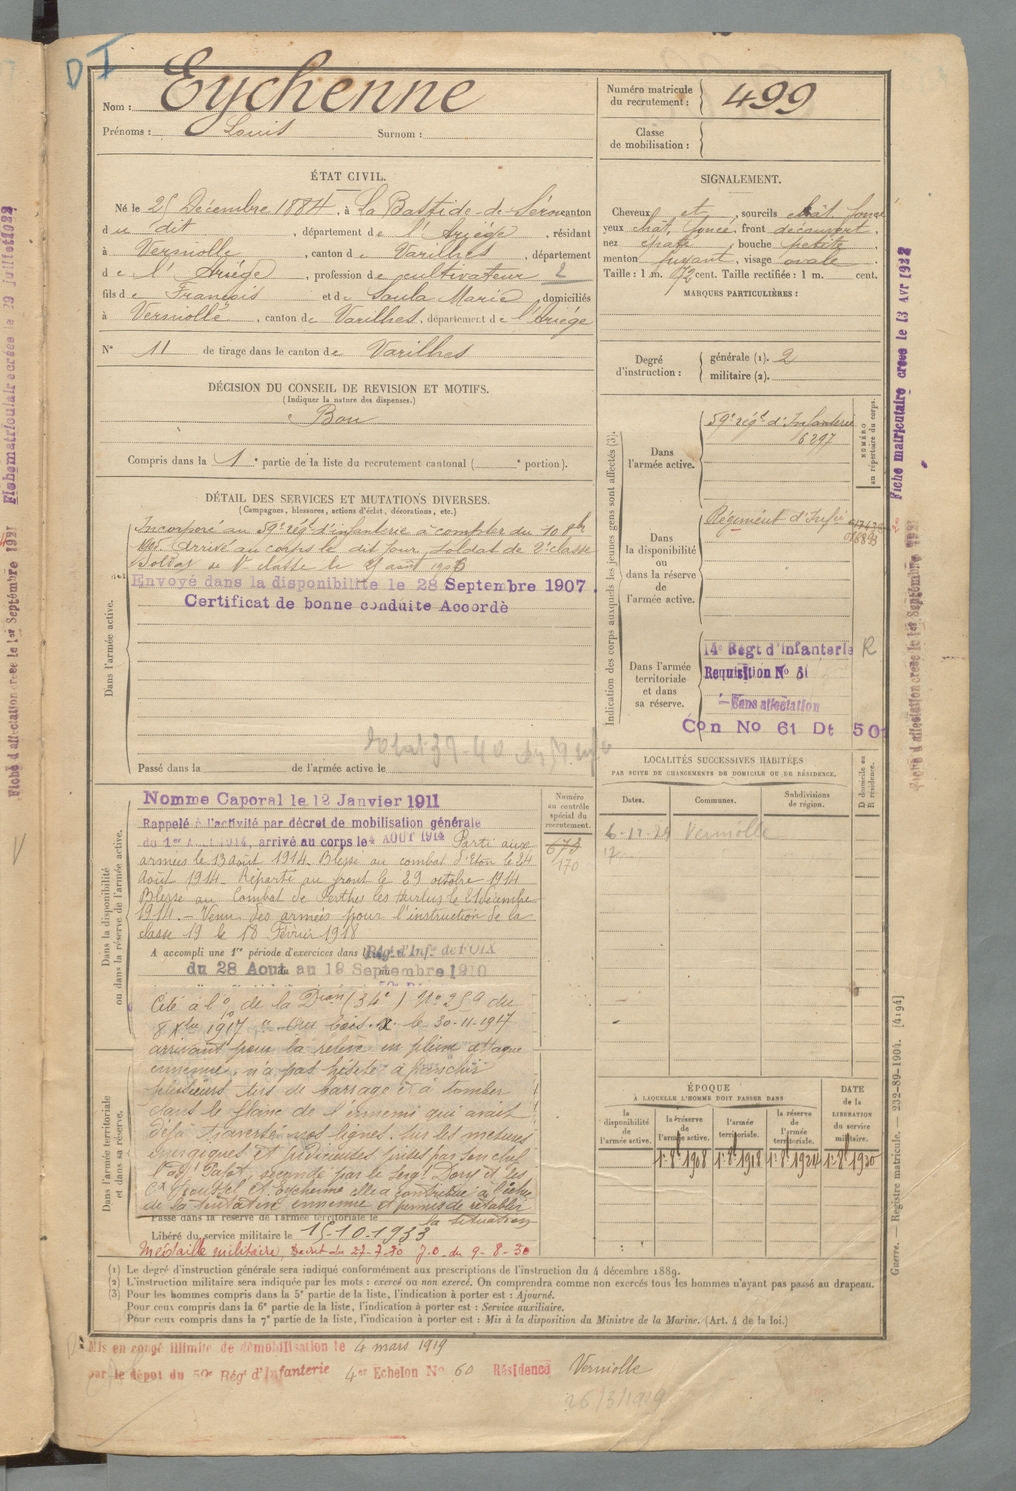 D I
Nom : Eychenne
Prénoms : Louis Surnom :
Numéro matricule du recrutement : 499
Classe de mobilisation :
ÉTAT CIVIL.
Né le 25 Décembre 1884, à La Bastide-de-Sérou canton
du dit, département de l'Ariège, résidant
à Verniolle, canton de Varilhes, département
de l'Ariège, profession de cultivateur 2
fils de François et de Saula Marie, domiciliés
à Verniolle, canton de Varilhes, département de l'Ariège
N° 11 de tirage dans le canton de Varilhes
SIGNALEMENT.
Cheveux et, sourcils chât. foncé
yeux chât. foncé, front découvert,
nez épaté, bouche petite,
menton fuyant, visage ovale.
Taille : 1 m. 72 cent. Taille rectifiée : 1 m. cent.
MARQUES PARTICULIÈRES :
Degré d'instruction : générale (1). 2
militaire (2).
DÉCISION DU CONSEIL DE REVISION ET MOTIFS.
(Indiquer la nature des dispenses.)
Bon
Compris dans la 1re partie de la liste du recrutement cantonal ( e portion).
DÉTAIL DES SERVICES ET MUTATIONS DIVERSES.
(Campagnes, blessures, actions d'éclat, décorations, etc.)
Dans l'armée active.
Incorporé au 59e régt d'infanterie à compter du 10 8bre
1905. Arrivé au corps le dit jour, soldat de 2e classe
Soldat de 1e classe le
Envoyé dans la disponibilité le 28 Septembre 1907.
Certificat de bonne conduite Accordé
Passé dans la de l'armée active le
Indication des corps auxquels les jeunes gens sont affectés (3).
NUMÉRO au répertoire du corps.
Dans l'armée active.
59e régt d'Infanterie
6297
Dans la disponibilité ou dans la réserve de l'armée active.
Régiment d'Infie
Dans l'armée territoriale et dans sa réserve.
14e Régt d'Infanterie R
Requisition No 31
Sans affectation
Con No 61 Dt 501
LOCALITÉS SUCCESSIVES HABITÉES
PAR SUITE DE CHANGEMENTS DE DOMICILE OU DE RÉSIDENCE.
Dates. Communes. Subdivisions de région. D domicile ou R résidence.
Verniolle
Dans la disponibilité ou dans la réserve de l'armée active.
Numéro au contrôle spécial du recrutement.
673
170
Nommé Caporal le 12 Janvier 1911
Rappelé à l'activité par décret de mobilisation générale
du 1er Août 1914, arrivé au corps le 4 AOUT 1914 Parti aux
armées le 13 août 1914. Blessé au combat d'Eton le 24
août 1914. Reparti au front le 29 octobre 1914
Blessé au Combat de Perthes les Hurlus le 21 décembre
1914. — Venu des armées pour l'instruction de la
classe 19 le 18 Février 1918
A accompli une 1re période d'exercices dans le Régt d'Infie de FOIX
du 28 Aout au 19 Septembre 1910
Cité à l'o. de la Dion (34e) No 259 du
8 Xbre 1917 "Au bois X. le 30-11-1917
arrivant pour la relève en pleine attaque
ennemie, n'a pas hésité à franchir
plusieurs tirs de barrage et à tomber
dans le flanc de l'ennemi qui avait
déjà traversé nos lignes. Sur les mesures
énergiques et judicieuses prises par son chef
l'adjt Pagot, secondé par le Sergt Dory et les
Cx et Eychenne elle a contribué à l'échec
de la tentative ennemie et permis de rétablir
la situation
Dans l'armée territoriale et dans sa réserve.
Passé dans la réserve de l'armée territoriale le
Libéré du service militaire le 15-10-1933
Médaille militaire, Décret du 27-7-30 J.O. du 9-8-30
ÉPOQUE
À LAQUELLE L'HOMME DOIT PASSER DANS
la disponibilité de l'armée active. la réserve de l'armée active. l'armée territoriale. la réserve de l'armée territoriale.
DATE de la LIBÉRATION du service militaire.
1er 8bre 1908 1er 8bre 1918 1er 8bre 1924 1er 8bre 1930
(1) Le degré d'instruction générale sera indiqué conformément aux prescriptions de l'instruction du 4 décembre 1889.
(2) L'instruction militaire sera indiquée par les mots : exercé ou non exercé. On comprendra comme non exercés tous les hommes n'ayant pas passé au drapeau.
(3) Pour les hommes compris dans la 5e partie de la liste, l'indication à porter est : Ajourné.
Pour ceux compris dans la 6e partie de la liste, l'indication à porter est : Service auxiliaire.
Pour ceux compris dans la 7e partie de la liste, l'indication à porter est : Mis à la disposition du Ministre de la Marine. (Art. 4 de la loi.)
Mis en congé illimité de démobilisation le 4 mars 1919
par le dépôt du 59e Régt d'Infanterie 4er Echelon No 60 Résidence Verniolle
26/3/1919
Guerre. — Registre matricule. — 232-89-1904. [4194]
Fiche matriculaire créée le 13 Avr 1922
Fiche d'affectation créée le 1er Septembre 1921
Fiche matriculaire créée le 19 Juillet 1922
Fiche d'affectation créée le 1er Septembre 1921